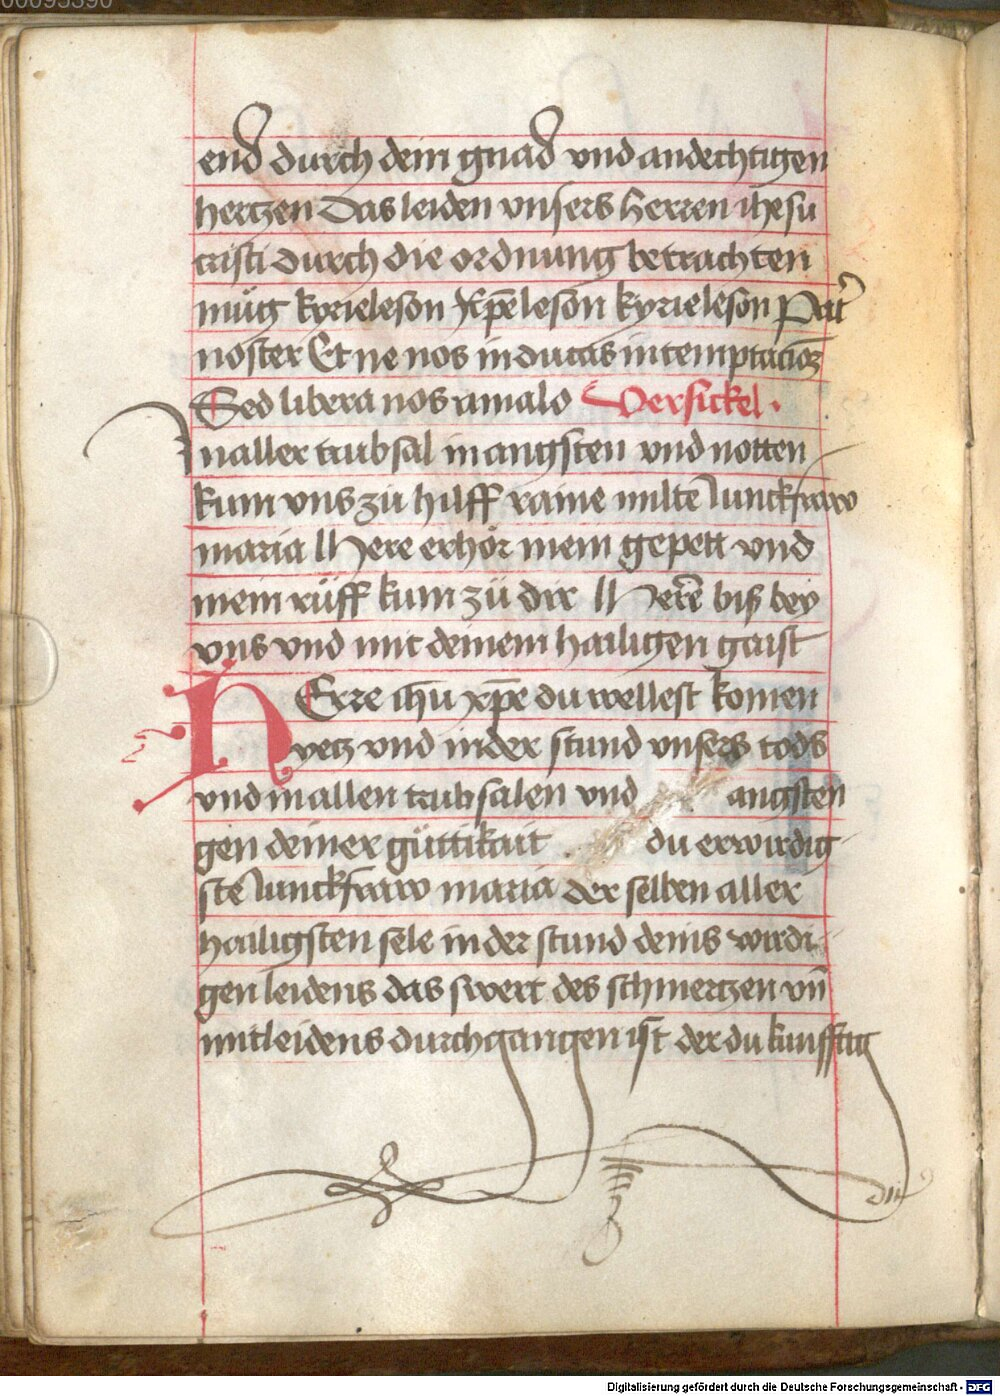 00095390
end durch dein gnad vnd andechtigen
hertzen Das leiden vnsers herren ihesu
cristi durch die ordnung betrachten
müg kyrieleson Xpeleson kyrieleson Pat̄
noster Et ne nos inducas in temptacionē
Sed libera nos a malo Versickel.
In aller trubsal in angsten vnd notten
kum vns zü hilff raine milte Junckfraw
maria Here erhör mein gepett vnd
mein rüff kum zü dir Here bis bey
vns vnd mit deinem hailigen gaist
HErre ihū xp̄e du wellest komen
yetz vnd in der stund vnsers tods
vnd in allen trubsalen vnd angsten
gen deiner güttikait du erwirdig
ste Junckfraw maria der selben aller
hailigsten sele in der stund deins wirdi
gen leidens das swert des schmertzen vn̄
mitleidens durchgangen ist der du kunfftig
Digitalisierung gefördert durch die Deutsche Forschungsgemeinschaft - DFG